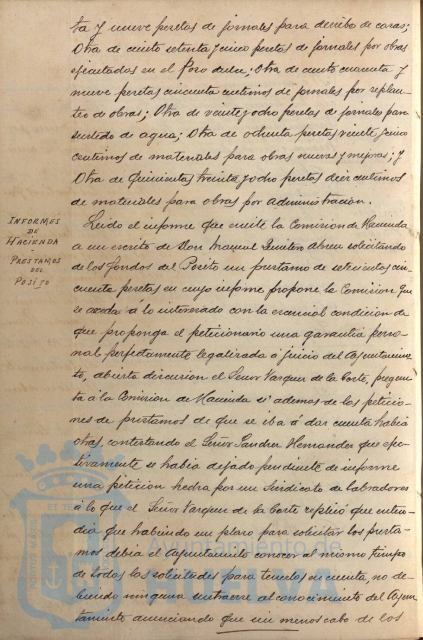 ta y nueve pesetas de jornales para derribo de casas;
Otra de ciento setenta y cinco pesetas de jornales por obras
ejecutadas en el Pozo dulce; Otra de ciento cuarenta y
nueve pesetas cincuenta centimos de jornales por replan-
teo de obras; Otra de veinte y ocho pesetas de jornales para
surtido de agua; Otra de ochenta pesetas veinte y cinco
centimos de materiales para obras nuevas y mejoras; y
Otra de quinientas treinta y ocho pesetas diez centimos
de materiales para obras por administración.
INFORMES
DE
HACIENDA
-
PRESTAMOS
DEL
POSITO
Leido el informe que emite la Comision de Hacienda
a un escrito de Don Manuel Quintero Abreu solicitando
de los fondos del Posito un prestamo de setecientas cin-
cuenta pesetas en cuyo informe propone la Comision que
se acceda a lo interesado con la esencial condicion de
que proponga el peticionario una garantia perso-
nal perfectamente legalizada á juicio del Ayuntamien-
to, abierta discusion el Señor Vazquez de la Corte, pregun-
tó á la Comision de Hacienda si ademas de las peticio-
nes de prestamos de que se iba á dar cuenta habia
otras, contestando el Señor Sanchez Hernandez que efec-
tivamente se habia dejado pendiente de informe
una peticion hecha por un Sindicato de Labradores
á lo que el Señor Vazquez de la Corte replicó que enten-
dia que habiendo un plazo para solicitar los presta-
mos debia el Ayuntamiento conocer al mismo tiempo
de todas las solicitudes para tenerlas en cuenta, no de-
biendo ninguna sustraerse al conocimiento del Ayun-
tamiento anunciando que sin menoscabo de los
Ayuntamiento de